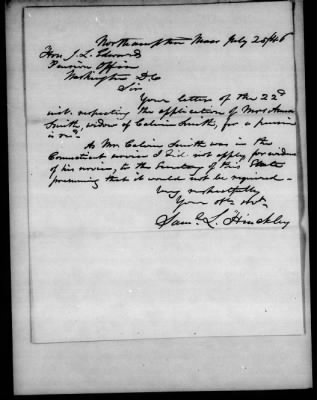 Northampton Mass July 25/46
Hon J. L. Edwards
Pension Office
Washington D.C.
Sir
Your letter of the 22d
inst. respecting the application of Mrs Anna
Smith, widow of Calvin Smith, for a pension
is recd.
As Mr. Calvin Smith was in the
Connecticut service I did not apply for evidence
of his service, to the Secretary of this State
presuming that it would not be required -
Very respectfully
Your Obt. Svt.
Saml. L. Hinckley